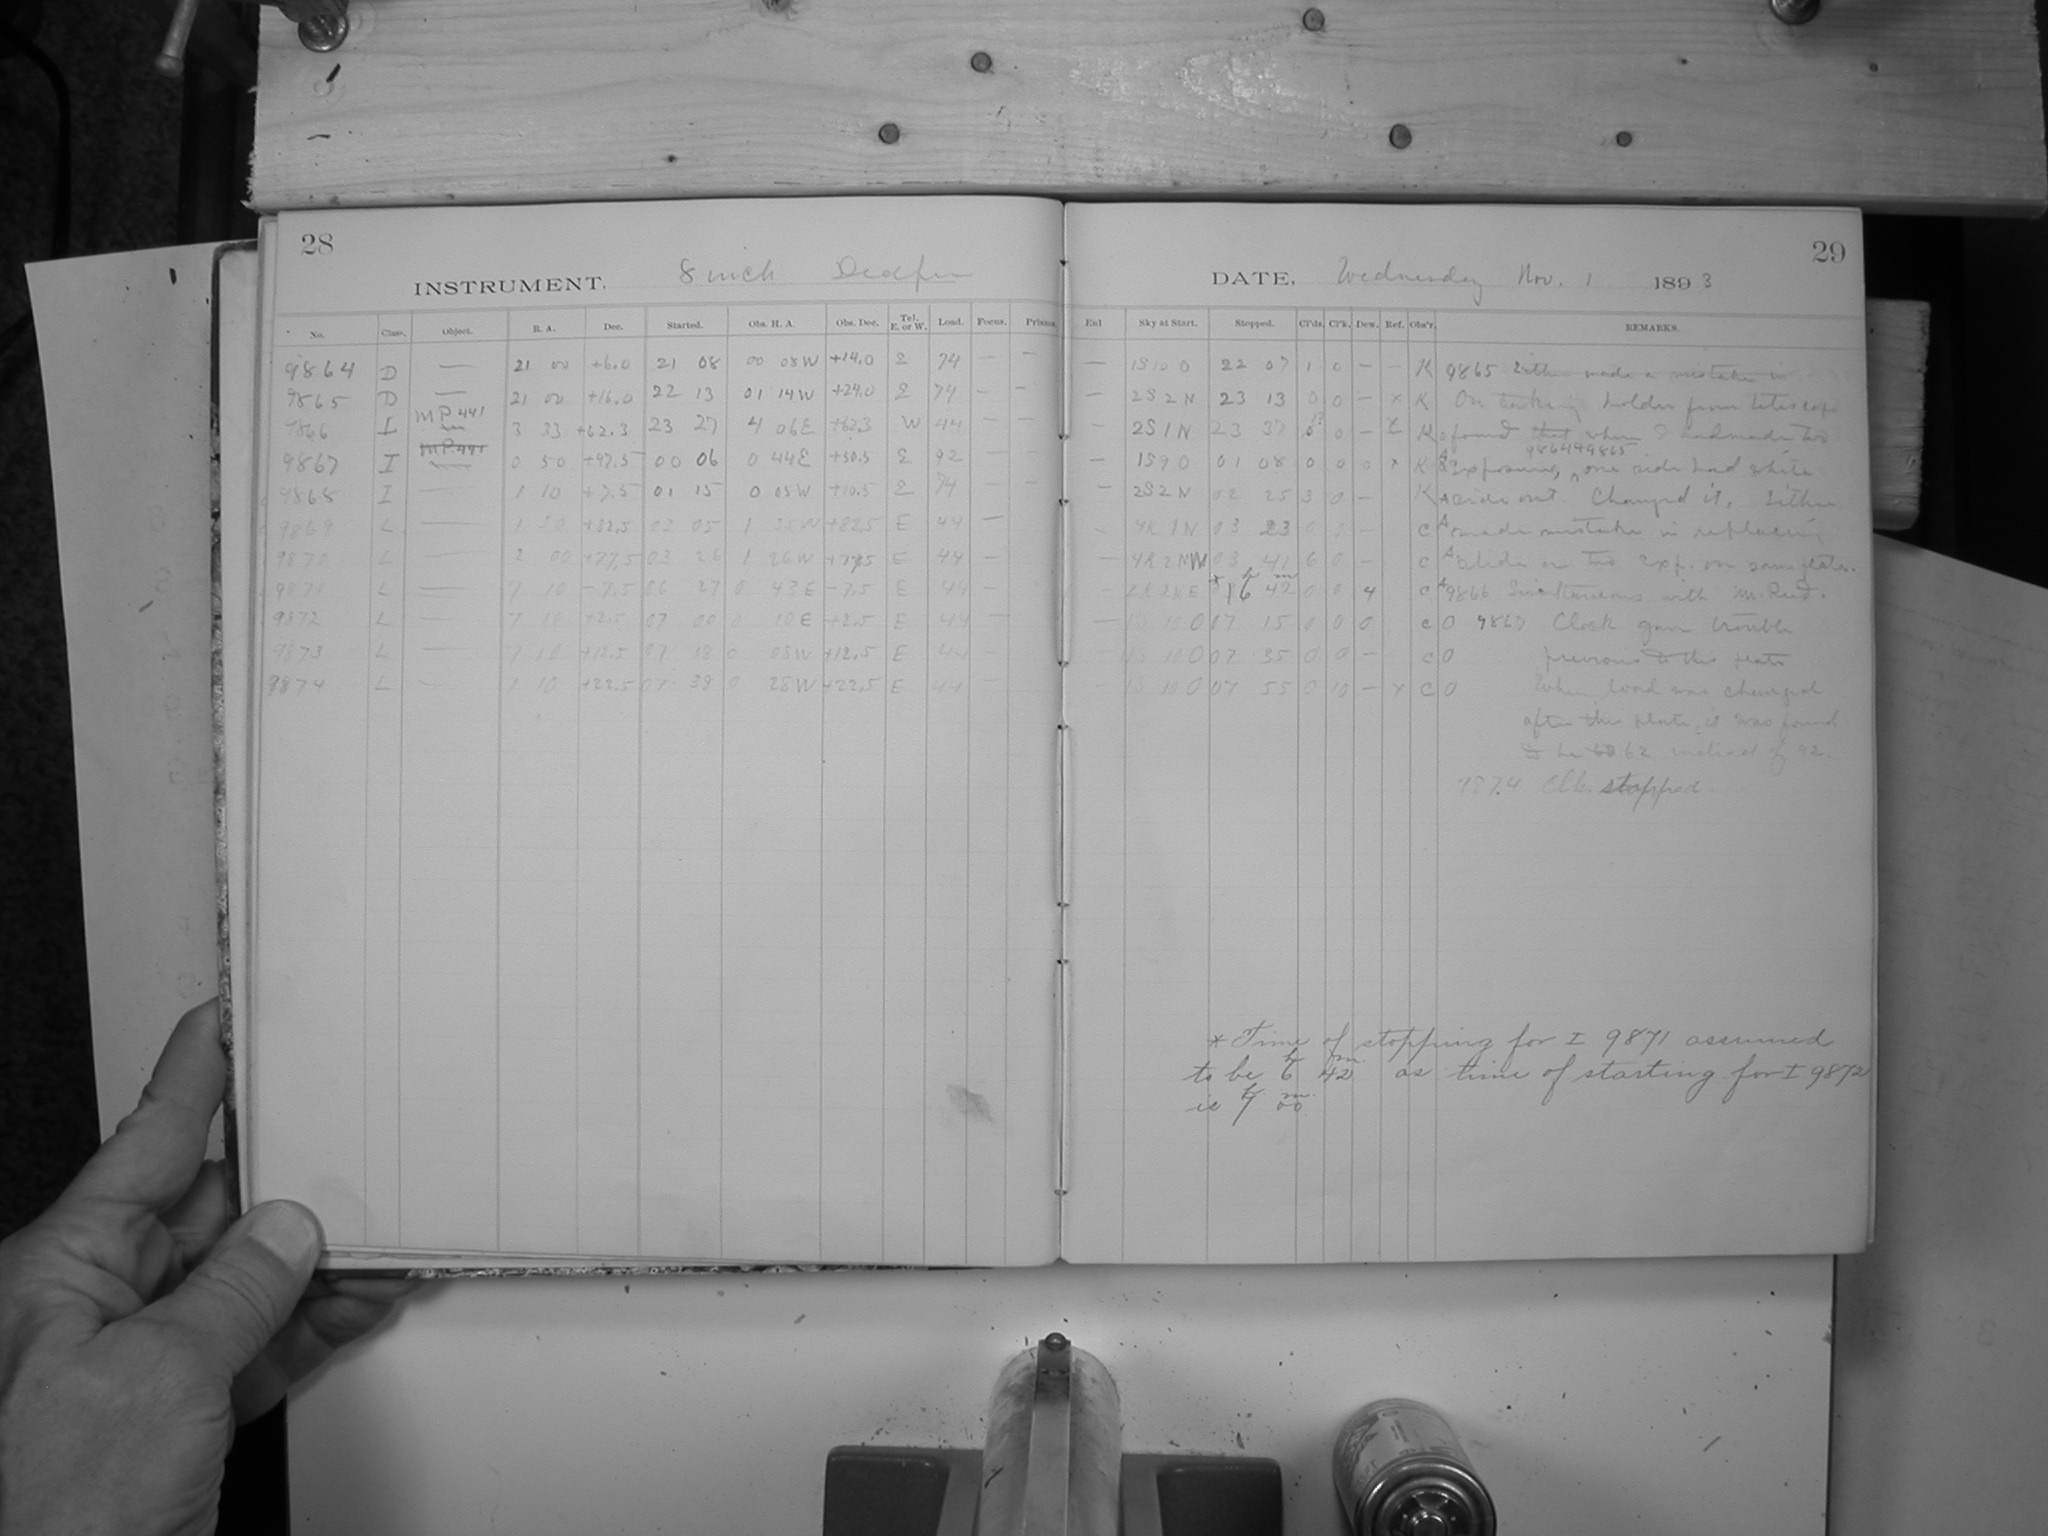 28
INSTRUMENT. 8 inch
No. Class. Object. R. A. Dec. Started. Obs. H. A. Obs. Dec. Tel. E. or W. Load. Focus. Prisms.
9864 D — 21 00 +6.0 21 08 00 08W +14.0 E 74 — —
9865 D — 21 00 +16.0 22 13 01 14W +24.0 E 74 — —
9866 I MP.441 3 33 +62.3 23 27 4 06E +62.3 W 44 — —
9867 I MP.441 0 50 +47.5 00 06 0 44E +50.5 E 92 — —
9868 I — 1 10 +7.5 01 15 0 05W +10.5 E 74 — —
9869 L — 1 30 +82.5 03 05 1 35W +82.5 E 44 —
9870 L — 2 00 +77.5 03 26 1 26W +77.5 E 44 —
9871 L — 7 10 -7.5 06 27 0 43E -7.5 E 44 —
9872 L — 7 10 +2.5 07 00 0 10E +2.5 E 44 —
9873 L — 7 10 +12.5 07 18 0 08W +12.5 E 44 —
9874 L — 10 +22.5 07 38 0 28W +22.5 E 44 —
29
DATE, Wednesday Nov. 1 1893
Enl Sky at Start. Stopped. Cl'ds. Cl'k. Dew. Ref. Obs'r. REMARKS.
— 1S10 0 22 07 1 0 — — K 9865 Either made a mistake in
— 2S2N 23 13 0 0 — x K On taking holder from telescope
— 2S1N 23 37 0 — K found that when I had made two
9864+9865
— 1S9 0 01 08 0 0 0 x K exposures, one side had white
— 2S2N 02 25 3 0 — K side out. Changed it. Either
— 4R1N 03 23 0 0 — C made mistake in replacing
— 4R2NW 03 41 6 0 — C slide or two exp. on same plate.
2R2NE * 6h 42m 0 0 4 C 9866 Simultaneous with Mr. Reed.
— 10 0 07 15 0 0 0 C 0 9867 Clock gave trouble
10 0 07 35 0 0 — C 0 previous to this plate
10 0 07 55 0 10 — x C 0 When load was changed
after this plate, it was found
to be 62 instead of 92.
9874 Clk. stopped.
* Time of stopping for I 9871 assumed
to be 6h 42m as time of starting for I 9872
is 7h 00m.